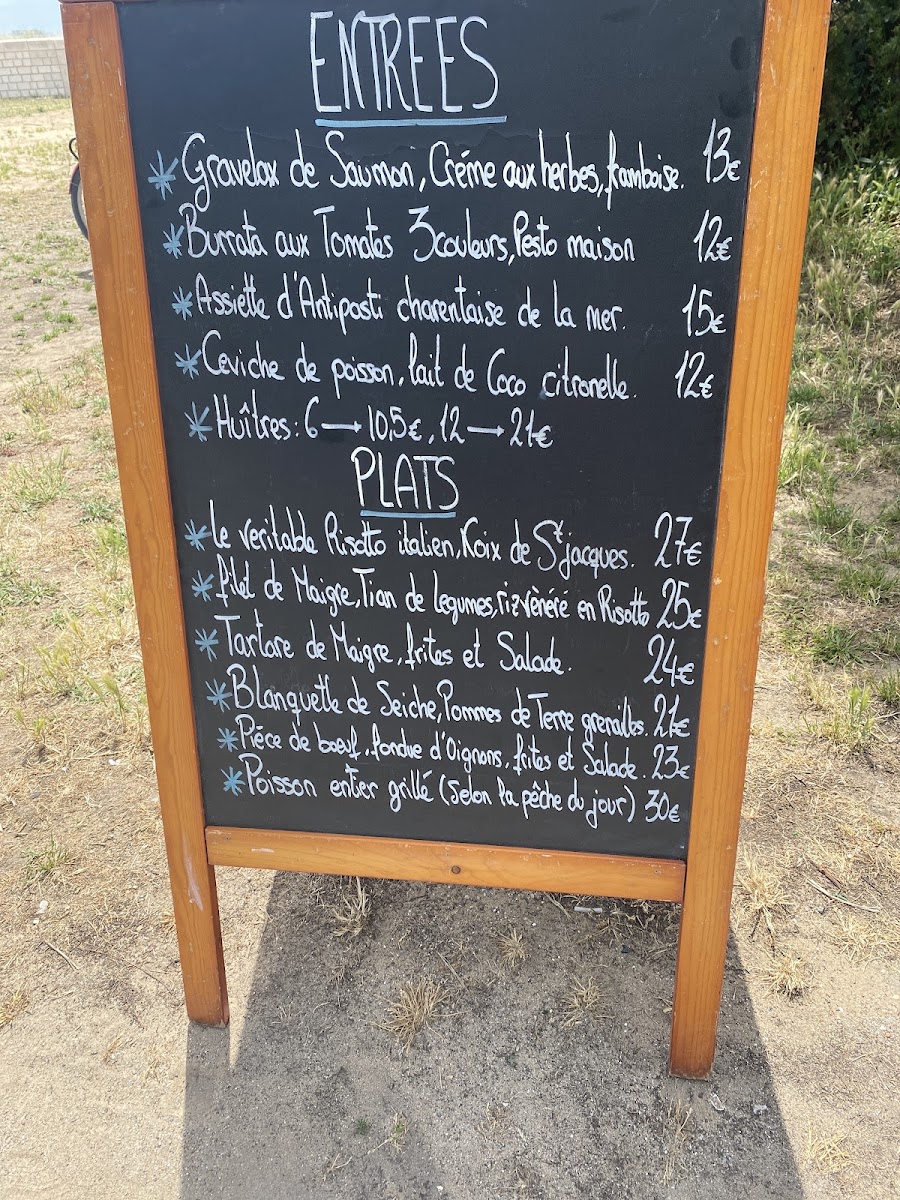 ENTREES
* Gravelax de Saumon, Créme aux herbes, framboise. 13€
* Burrata aux Tomates 3 couleurs, Pesto maison 12€
* Assiette d'Antiposti charentaise de la mer. 15€
* Ceviche de poisson, lait de Coco citronelle. 12€
* Huîtres: 6 → 10,5€, 12 → 21€
PLATS
* Le veritable Risotto italien, Noix de St jacques. 27€
* filet de Maigre, Tian de legumes, riz vènéré en Risotto 25€
* Tartare de Maigre, frites et Salade. 24€
* Blanquette de Seiche, Pommes de Terre grenailles. 21€
* Piéce de boeuf, fondue d'Oignons, frites et Salade. 23€
* Poisson entier grillé (Selon la pêche du jour) 30€